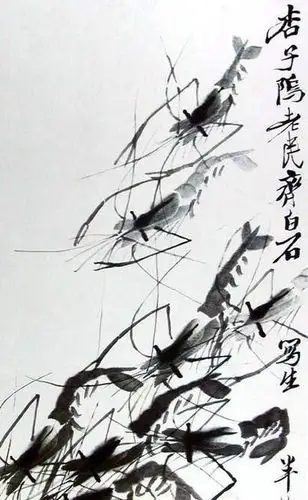 杏子隖老民齊白石
写生
半